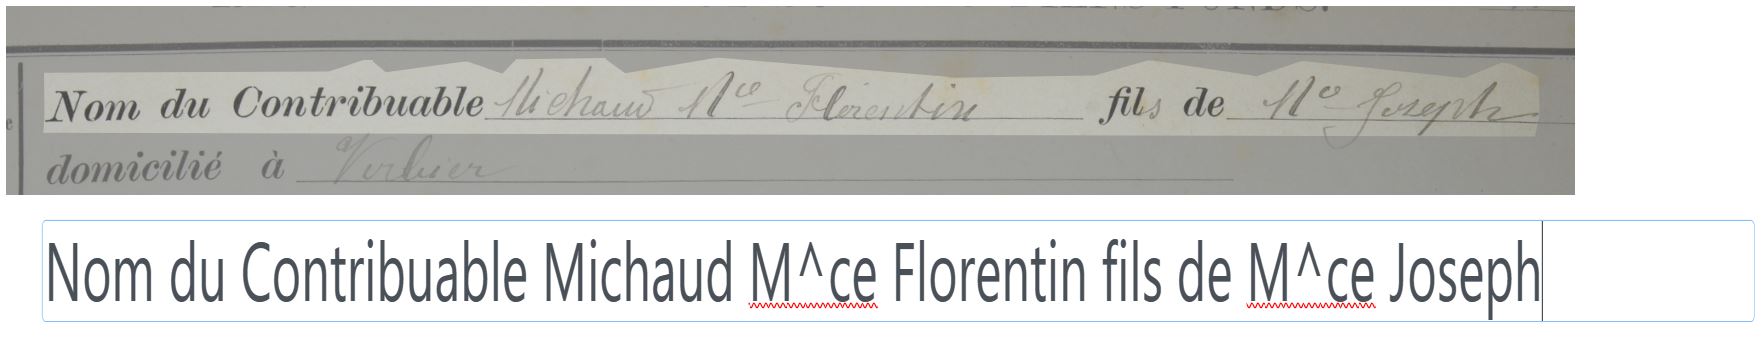 Nom du Contribuable Michaud Mce Florentin fils de Mce Joseph
domicilié à Verbier
Nom du Contribuable Michaud M^ce Florentin fils de M^ce Joseph